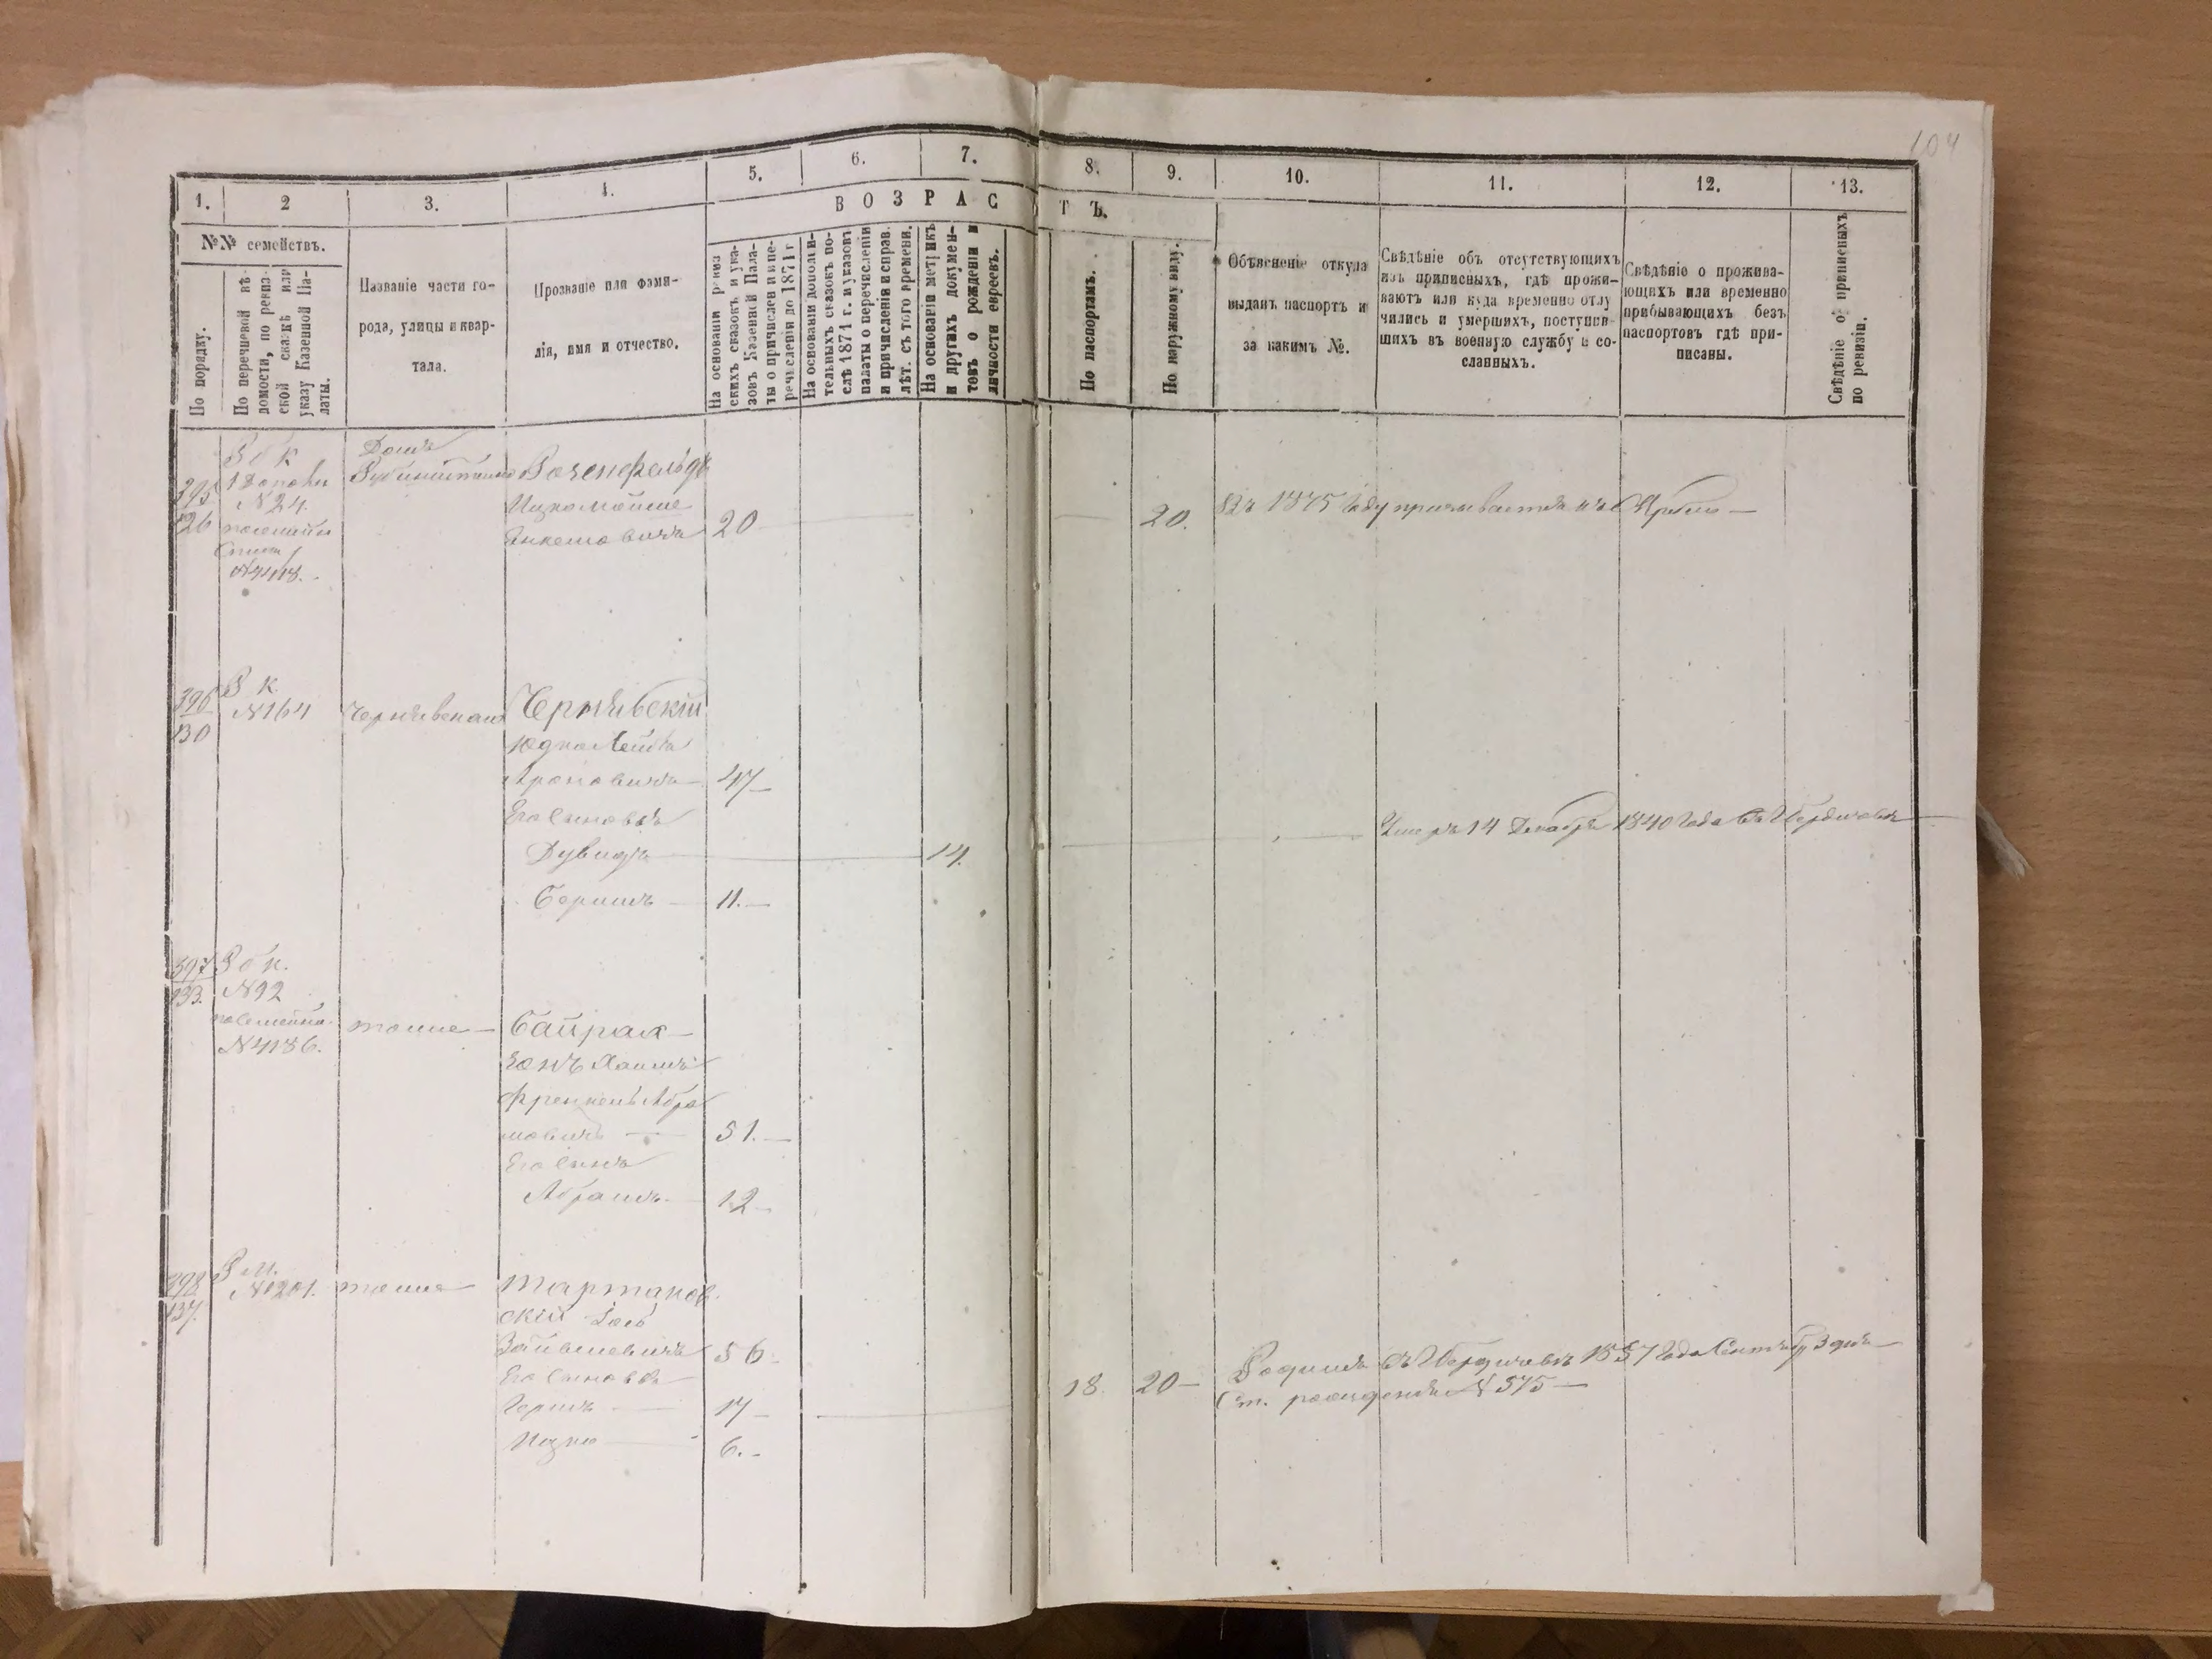 104
1.
2
3.
4.
5.
6.
7.
8.
9.
10.
11.
12.
13.
ВОЗРАСТЪ.
№№ семействъ.
По порядку.
По перечневой вѣ-
домости, по ревиз-
ской сказкѣ или
указу Казенной Па-
латы.
Названіе части го-
рода, улицы и квар-
тала.
Прозваніе или фами-
лія, имя и отчество.
На основаніи ревиз
скихъ сказокъ и ука-
зовъ Казенной Пала-
ты о причисленіи и пе-
речисленіи до 1871 г
На основаніи дополни-
тельныхъ сказокъ по-
слѣ 1871 г. и указовъ
палаты о перечисленіи
и причисленіи и справ.
лѣт. съ того времени.
На основаніи метрикъ
и другихъ докумен-
товъ о рожденіи и
личности евреевъ.
По паспортамъ.
По наружному виду.
Объясненіе откуда
выданъ паспортъ и
за какимъ №.
Свѣдѣніе объ отсутствующихъ
изъ приписныхъ, гдѣ прожи-
ваютъ или куда временно отлу
чились и умершихъ, поступив-
шихъ въ военную службу и со-
сланныхъ.
Свѣдѣніе о прожива-
ющихъ или временно
прибывающихъ безъ
паспортовъ гдѣ при-
писаны.
Свѣдѣніе о приписныхъ
по ревизіи.
395
126
Р б к
№ 24.
Домъ
Розенфельдъ
Ицко Мойше
Янкелевичъ 20 20. Въ 1875 году призывается къ жребію
396
130
Р К
№ 164
Чернявская
Чернявскій
Юдко Лейба
Ароновичъ 47
Его сыновья
Дувидъ 14. Умеръ 14 Декабря 1840 года въ Бердичевѣ
Беришъ 11.
397
133.
Р б к.
№ 92
посемейн.
№ 4136.
тоже
Байрах
Хаимъ
Френкель Абра
мовичъ 51.
Его сынъ
Абрамъ 12
398
137.
Р м.
№ 201.
тоже
Тартаков
скій Іось
56
Его сыновья
Гершъ 14 18. 20 Родился въ Бердичевѣ 1857 года Сентября 3 дня
Ст. рожденія № 575
Ицко 6.